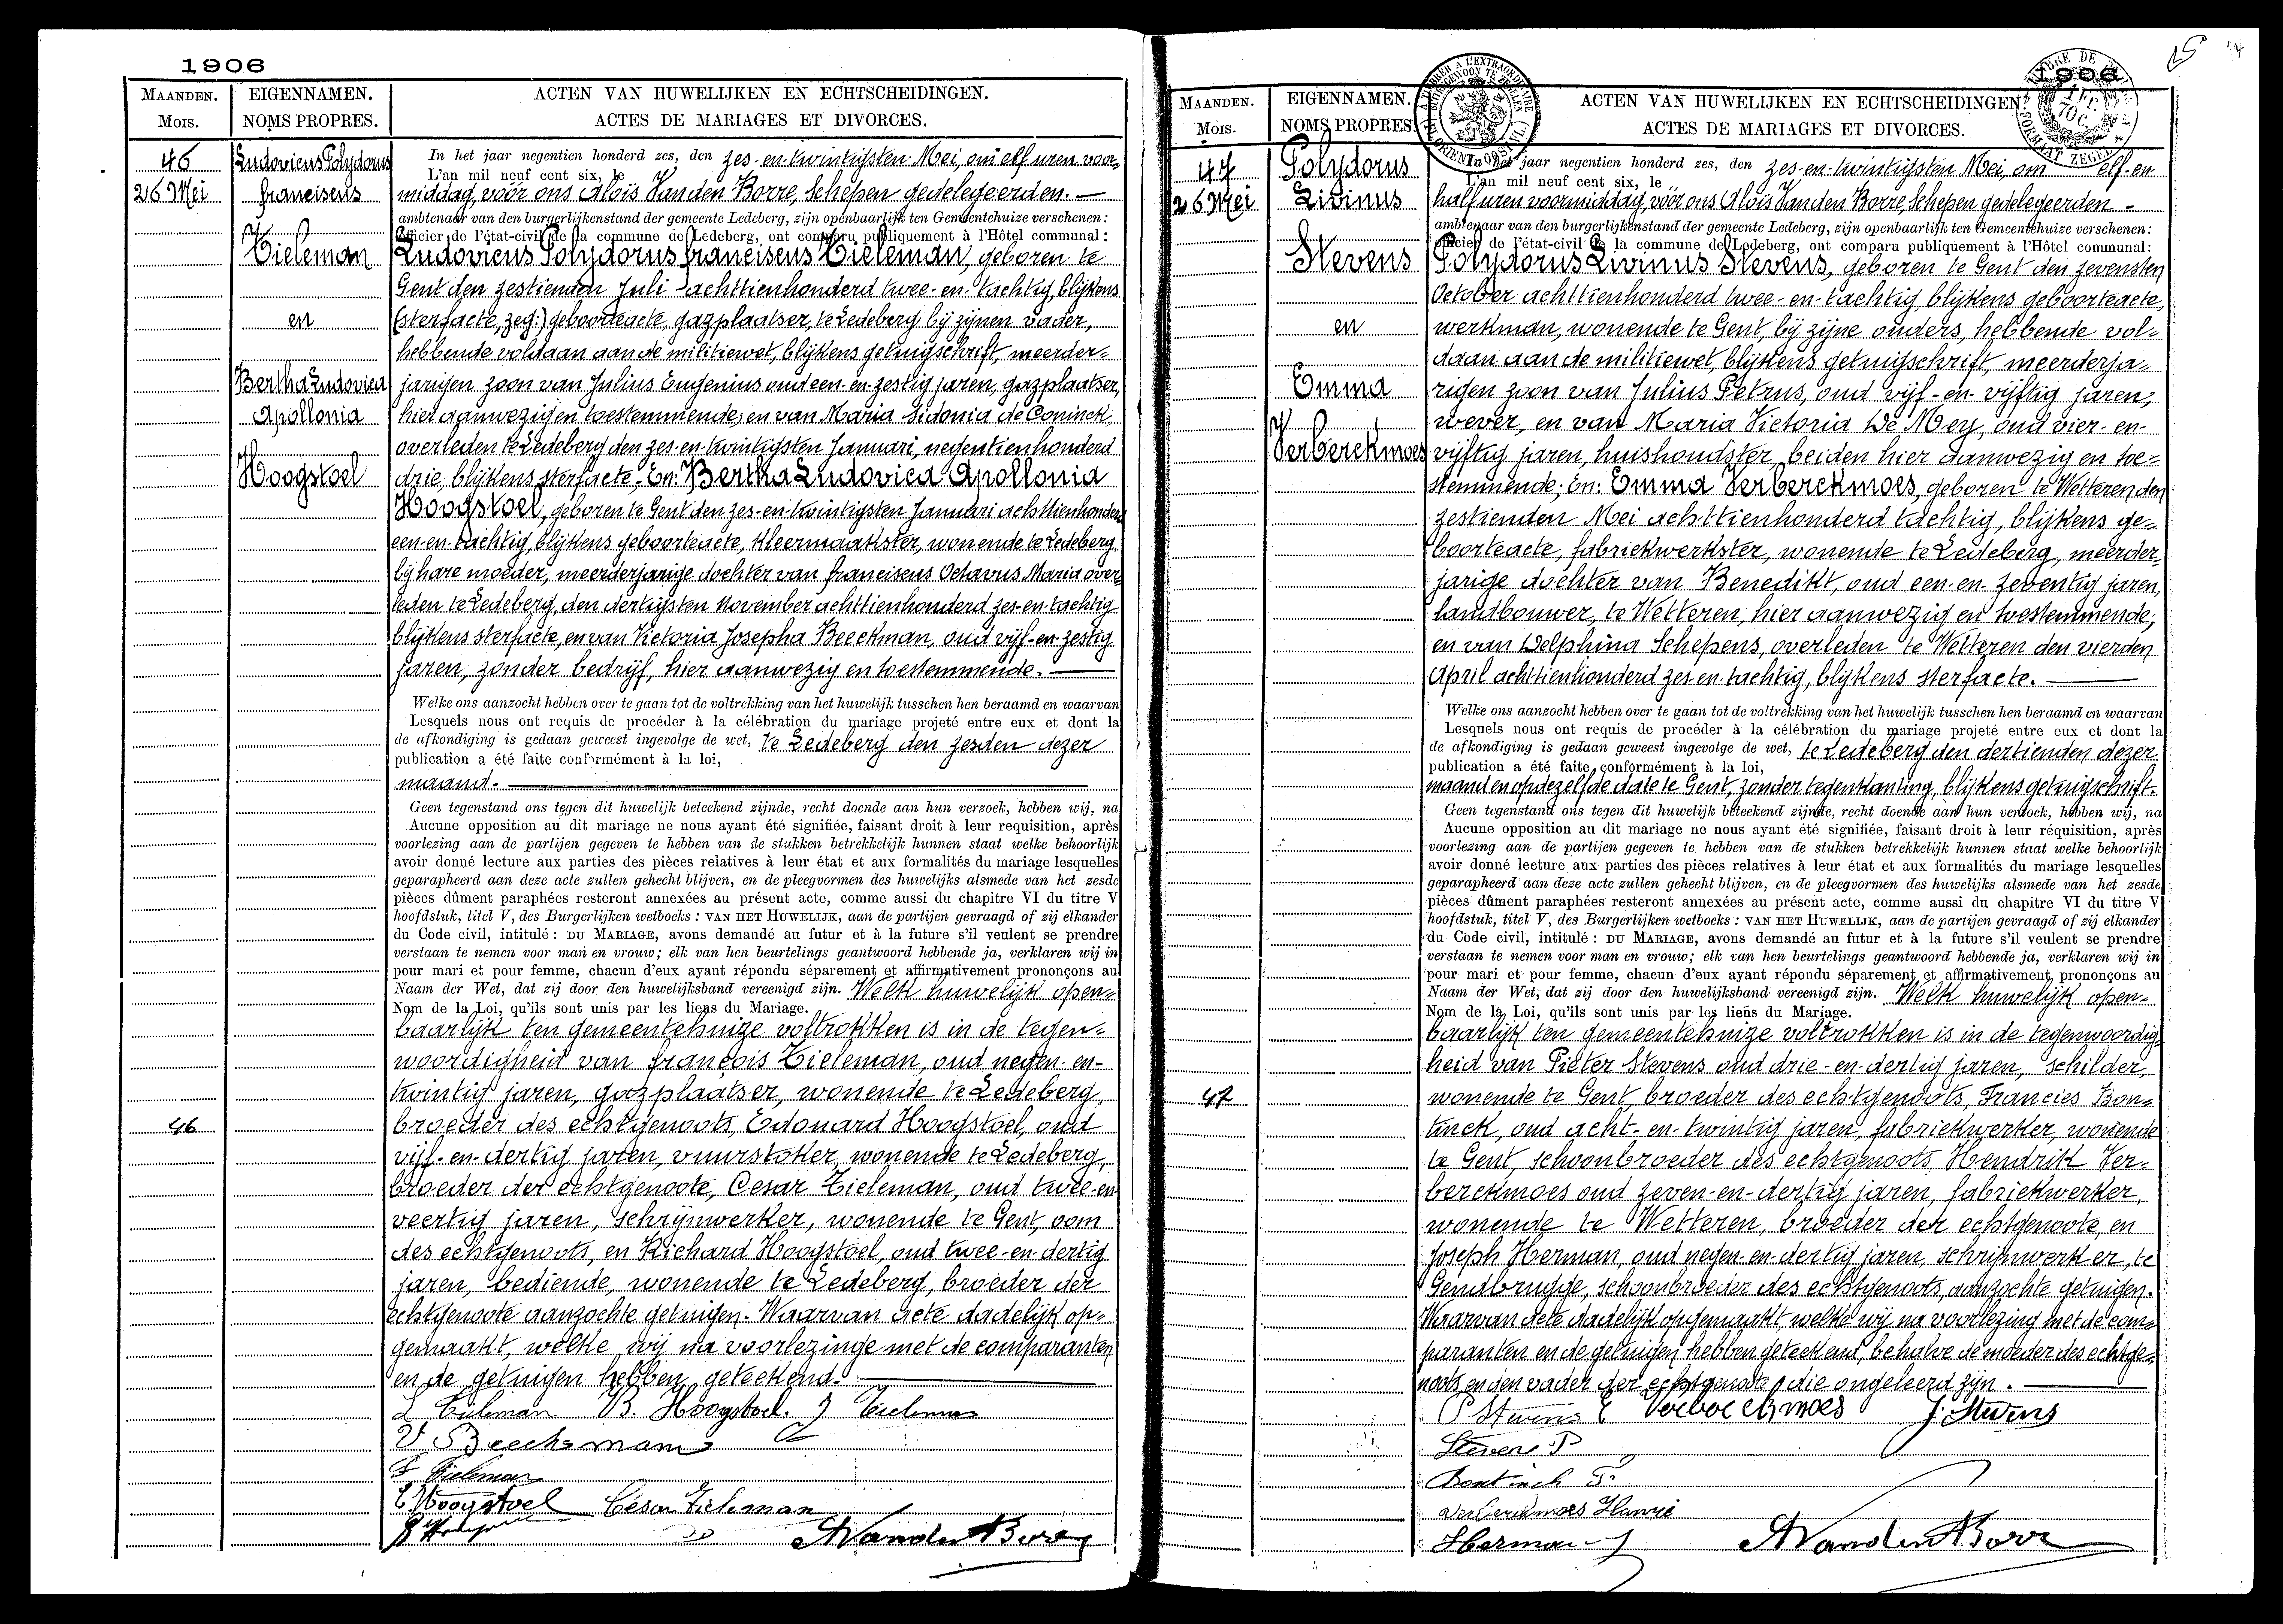 1906
MAANDEN.
Mois.
EIGENNAMEN.
NOMS PROPRES.
ACTEN VAN HUWELIJKEN EN ECHTSCHEIDINGEN.
ACTES DE MARIAGES ET DIVORCES.
46
26 Mei
Ludovicus Polydorus
franciscus
Tieleman
en
Bertha Ludovica
Apollonia
Hoogstoel
46
In het jaar negentien honderd zes, den zes-en-twintigsten Mei, om elf uren voor=
L'an mil neuf cent six, le
middag, vóór ons Alois Van den Borre, Schepen gedelegeerden. —
ambtenaar van den burgerlijkenstand der gemeente Ledeberg, zijn openbaarlijk ten Gemeentehuize verschenen:
Officier de l'état-civil de la commune de Ledeberg, ont comparu publiquement à l'Hôtel communal:
Ludovicus Polydorus franciscus Tieleman, geboren te
Gent den zestienden Juli achttienhonderd twee-en-tachtig, blijkens
(sterfacte, zeg:) geboorteacte, gazplaatser, te Ledeberg bij zijnen vader,
hebbende voldaan aan de militiewet, blijkens getuigschrift, meerder=
jarigen zoon van Julius Eugenius oud een-en-zestig jaren, gazplaatser,
hier aanwezig en toestemmende, en van Maria Sidonia de Coninck,
overleden te Ledeberg den zes-en-twintigsten Januari, negentienhonderd
drie, blijkens sterfacte. En: Bertha Ludovica Apollonia
Hoogstoel, geboren te Gent den zes-en-twintigsten Januari achttienhonderd
een-en-tachtig, blijkens geboorteacte, kleermaakster, wonende te Ledeberg.
bij hare moeder, meerderjarige dochter van franciscus Octavus Maria over=
leden te Ledeberg, den dertigsten November achttienhonderd zes-en-tachtig
blijkens sterfacte, en van Victoria Josepha Beeckman, oud vijf-en-zestig
jaren, zonder bedrijf, hier aanwezig en toestemmende. —
Welke ons aanzocht hebben over te gaan tot de voltrekking van het huwelijk tusschen hen beraamd en waarvan
Lesquels nous ont requis de procéder à la célébration du mariage projeté entre eux et dont la
de afkondiging is gedaan geweest ingevolge de wet, te Ledeberg den zesden dezer
publication a été faite conformément à la loi,
maand. —
Geen tegenstand ons tegen dit huwelijk beteekend zijnde, recht doende aan hun verzoek, hebben wij, na
Aucune opposition au dit mariage ne nous ayant été signifiée, faisant droit à leur requisition, après
voorlezing aan de partijen gegeven te hebben van de stukken betrekkelijk hunnen staat welke behoorlijk
avoir donné lecture aux parties des pièces relatives à leur état et aux formalités du mariage lesquelles
geparapheerd aan deze acte zullen gehecht blijven, en de pleegvormen des huwelijks alsmede van het zesde
pièces dûment paraphées resteront annexées au présent acte, comme aussi du chapitre VI du titre V
hoofdstuk, titel V, des Burgerlijken wetboeks: VAN HET HUWELIJK, aan de partijen gevraagd of zij elkander
du Code civil, intitulé: DU MARIAGE, avons demandé au futur et à la future s'il veulent se prendre
verstaan te nemen voor man en vrouw; elk van hen beurtelings geantwoord hebbende ja, verklaren wij in
pour mari et pour femme, chacun d'eux ayant répondu séparement et affirmativement prononçons au
Naam der Wet, dat zij door den huwelijksband vereenigd zijn. Welk huwelijk open=
Nom de la Loi, qu'ils sont unis par les liens du Mariage.
baarlijk ten gemeentehuize voltrokken is in de tegen=
woordigheid van françois Tieleman, oud negen-en-
twintig jaren, gazplaatser, wonende te Ledeberg,
broeder des echtgenoots, Edouard Hoogstoel, oud
vijf-en-dertig jaren, vuurstoker, wonende te Ledeberg,
broeder der echtgenoote, Cesar Tieleman, oud twee-en
veertig jaren, schrijnwerker, wonende te Gent, oom
des echtgenoots, en Richard Hoogstoel, oud twee-en-dertig
jaren, bediende, wonende te Ledeberg, broeder der
echtgenoote aanzochte getuigen. Waarvan acte dadelijk op=
gemaakt, welke wij na voorlezinge met de comparanten
en de getuigen hebben geteekend. —
L Tieleman B. Hoogstoel. J Tieleman
V Beeckman
F Tieleman
E. Hoogstoel César Tieleman
AVandenBorre
1906
MAANDEN.
Mois.
EIGENNAMEN.
NOMS PROPRES.
ACTEN VAN HUWELIJKEN EN ECHTSCHEIDINGEN.
ACTES DE MARIAGES ET DIVORCES.
47
26 Mei
Polydorus
Livinus
Stevens
en
Emma
Verberckmoes
47
In het jaar negentien honderd zes, den zes-en-twintigsten Mei, om elf-en
L'an mil neuf cent six, le
half uren voormiddag, vóór ons Alois Van den Borre, Schepen gedelegeerden -
ambtenaar van den burgerlijkenstand der gemeente Ledeberg, zijn openbaarlijk ten Gemeentehuize verschenen:
Officier de l'état-civil de la commune de Ledeberg, ont comparu publiquement à l'Hôtel communal:
Polydorus Livinus Stevens, geboren te Gent den zevensten
October achttienhonderd twee-en-tachtig, blijkens geboorteacte,
werkman, wonende te Gent, bij zijne ouders, hebbende vol=
daan aan de militiewet, blijkens getuigschrift, meerderja=
rigen zoon van Julius Petrus, oud vijf-en-vijftig jaren,
wever, en van Maria Victoria De Mey, oud vier-en-
vijftig jaren, huishoudster, beiden hier aanwezig en toe=
stemmende; En: Emma Verberckmoes, geboren te Wetteren den
zestienden Mei achttienhonderd tachtig, blijkens ge=
boorteacte, fabriekwerkster, wonende te Ledeberg, meerder=
jarige dochter van Benedikt, oud een-en-zeventig jaren,
landbouwer, te Wetteren, hier aanwezig en toestemmende;
en van Delphina Schepens, overleden te Wetteren den vierden
April achttienhonderd zes en tachtig, blijkens sterfacte. —
Welke ons aanzocht hebben over te gaan tot de voltrekking van het huwelijk tusschen hen beraamd en waarvan
Lesquels nous ont requis de procéder à la célébration du mariage projeté entre eux et dont la
de afkondiging is gedaan geweest ingevolge de wet, te Ledeberg den dertienden dezer
publication a été faite conformément à la loi,
maand en op dezelfde date te Gent, zonder tegenkanting, blijkens getuigschrift.
Geen tegenstand ons tegen dit huwelijk beteekend zijnde, recht doende aan hun verzoek, hebben wij, na
Aucune opposition au dit mariage ne nous ayant été signifiée, faisant droit à leur réquisition, après
voorlezing aan de partijen gegeven te hebben van de stukken betrekkelijk hunnen staat welke behoorlijk
avoir donné lecture aux parties des pièces relatives à leur état et aux formalités du mariage lesquelles
geparapheerd aan deze acte zullen gehecht blijven, en de pleegvormen des huwelijks alsmede van het zesde
pièces dûment paraphées resteront annexées au présent acte, comme aussi du chapitre VI du titre V
hoofdstuk, titel V, des Burgerlijken wetboeks: VAN HET HUWELIJK, aan de partijen gevraagd of zij elkander
du Code civil, intitulé: DU MARIAGE, avons demandé au futur et à la future s'il veulent se prendre
verstaan te nemen voor man en vrouw; elk van hen beurtelings geantwoord hebbende ja, verklaren wij in
pour mari et pour femme, chacun d'eux ayant répondu séparement et affirmativement, prononçons au
Naam der Wet, dat zij door den huwelijksband vereenigd zijn. Welk huwelijk open=
Nom de la Loi, qu'ils sont unis par les liens du Mariage.
baarlijk ten gemeentehuize voltrokken is in de tegenwoordig=
heid van Pieter Stevens oud drie-en-dertig jaren, schilder,
wonende te Gent broeder des echtgenoots, Francies Bon=
tinck, oud acht-en-twintig jaren, fabriekwerker, wonende
te Gent, schoonbroeder des echtgenoots, Hendrik Ver=
berckmoes oud zeven-en-dertig jaren, fabriekwerker,
wonende te Wetteren, broeder der echtgenoote, en
Joseph Herman, oud negen-en-dertig jaren, schrijnwerker, te
Gendbrugge, schoonbroeder des echtgenoots, aanzochte getuigen.
Waarvan acte dadelijk opgemaakt, welke wij na voorlezing met de com=
paranten en de getuigen hebben geteekend, behalve de moeder des echtge=
noots en den vader der echtgenoote die ongeleerd zijn. —
P Stevens E Verberckmoes J. Stevens
Stevens P
Bontinck F.
Verberckmoes Henri
Herman J
AVandenBorre